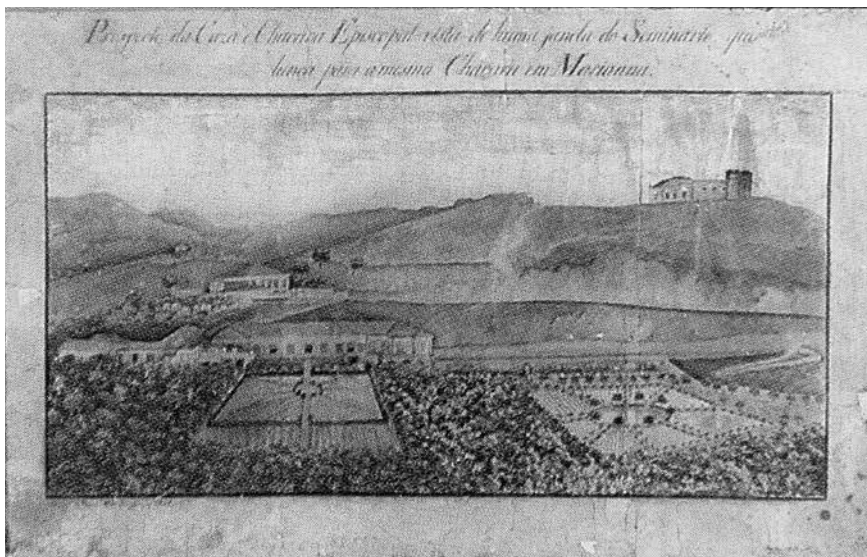 Prospecto da Caza e Chacara Episcopal vista de huma janela do Seminario, que
lança para a mesma Chacara em Marianna.